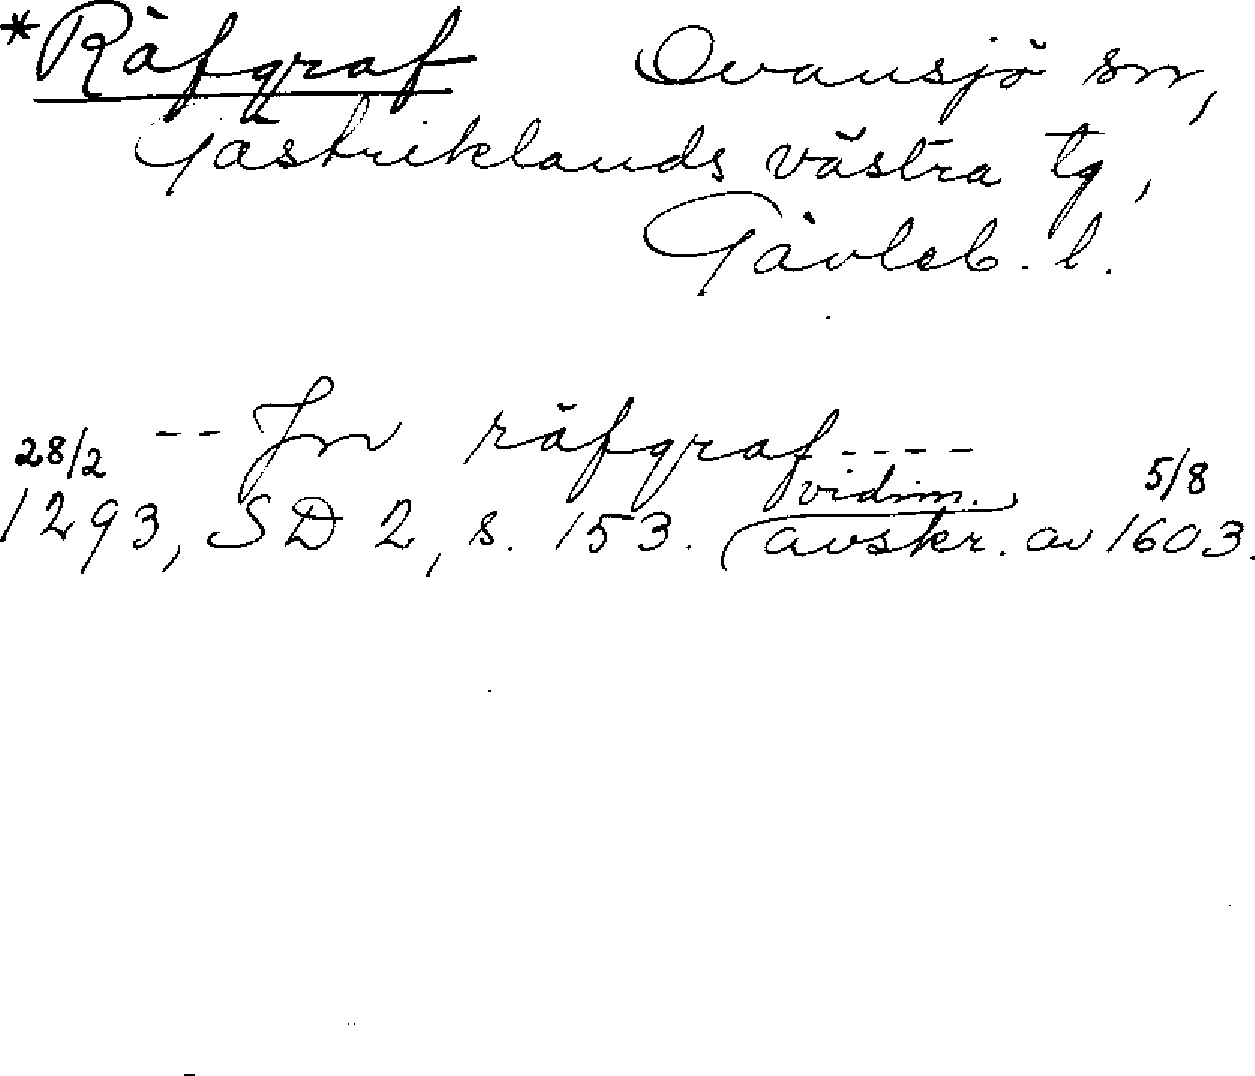 *Räfgraf Ovansjö sn,
Gästriklands västra tg,
Gävleb. l.
-- Jn räfgraf ----
28/2 vidim. 5/8
1293, SD 2, s. 153. (avskr. av 1603.